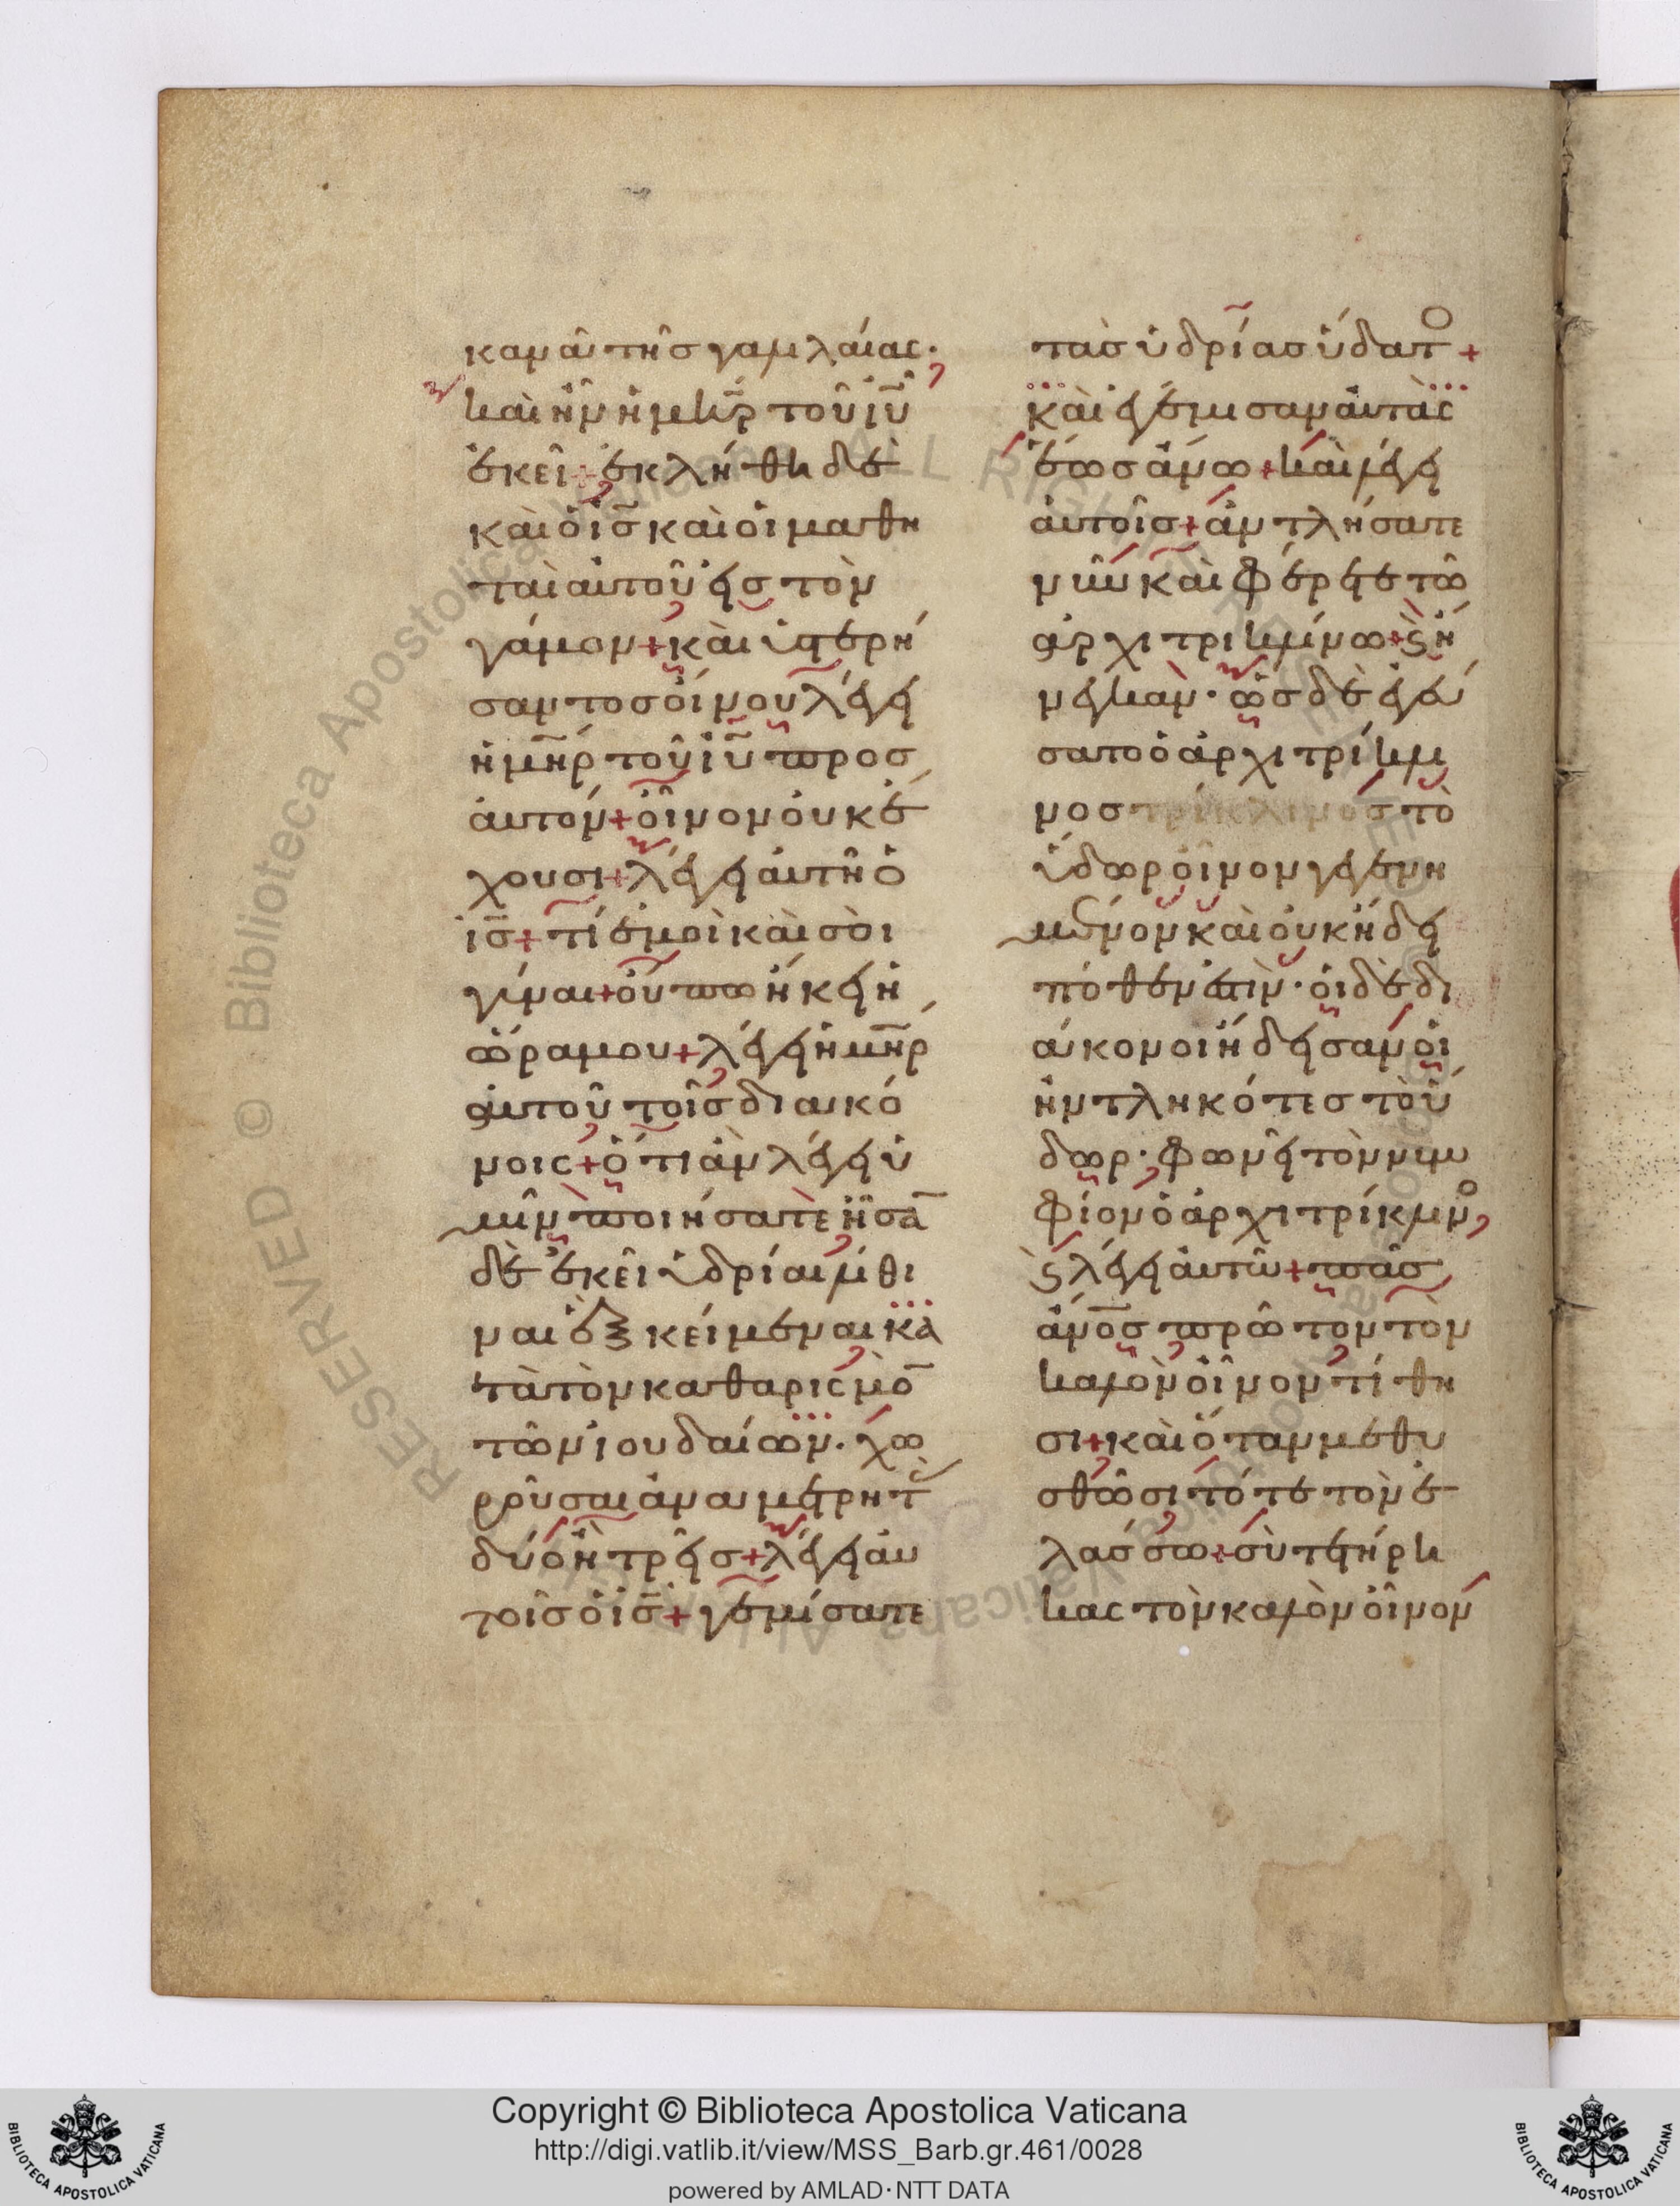 κανᾶ τῆσ γαλιλαίας·
καὶ ἦν ἡ μη̅ρ τοῦ ιυ̅
ἐκεῖ + ἐκλήθη δὲ
καὶ ὁ ισ̅ καὶ οἱ μαθη
ταὶ αὐτοῦ εἰσ τὸν
γάμον + καὶ ὑστερή
σαντοσ οἴνου λέγει
ἡ μη̅ρ τοῦ ιυ̅ προσ
αὐτόν + οἶνον οὐκ ἔ
χουσι + λέγει αὐτῆ ὁ
ισ̅ + τί ἐμοὶ καὶ σὸι
γύναι + οὔπω ἥκει ἡ
ὥρα μου + λέγει ἡ μη̅ρ
αὐτοῦ τοῖσ διακό
νοις + ὅ τι ἂν λέγει ὑ
μῖν ποιήσατε ἦσα̅
δὲ ἐκεῖ ὑδρίαι λίθι
ναι ἓξ κείμεναι κα
τὰ τὸν καθαρισμὸ̅
τῶν ἰουδαίων. χω
ροῦσαι ἀνα μετρητ
δύο ἢ τρεῖσ + λέγει αὐ
τοῖσ ὁ ισ̅ + γεμίσατε
τὰσ ὑδρίασ ὕδατο +
καὶ ἐγέμισαν αὐτὰς
ἕωσ ἄνω + καὶ λέγει
αὐτοῖσ + ἀντλήσατε
νῦν καὶ φέρετε τῶ
ἀρχιτρικλίνω + ϗ ἤ
νεγκαν· ὡσ δὲ ἐγεύ
σατο ὁ ἀρχιτρίκλι
νοσ τὸ
ὕδωρ οἶνον γεγενη
μένον καὶ οὐκ ἤδει
πόθεν ἐστὶν· οἱ δὲ δι
άκονοι ἤδεισαν οἱ
ἠντληκότεσ τὸ ὕ
δωρ· φωνεῖ τὸν νυμ
φίον ὁ ἀρχιτρίκλινο
ϗ λέγει αὐτῶ + πᾶσ
ἀν̅οσ πρῶτον τὸν
καλὸν οἶνον τίθη
σι + καὶ ὅταν μεθυ
σθῶσι τότε τὸν ἐ
λάσσω + σὺ τετήρη
κας τὸν καλὸν οἶνον
Copyright © Biblioteca Apostolica Vaticana
http://digi.vatlib.it/view/MSS_Barb.gr.461/0028
powered by AMLAD·NTT DATA